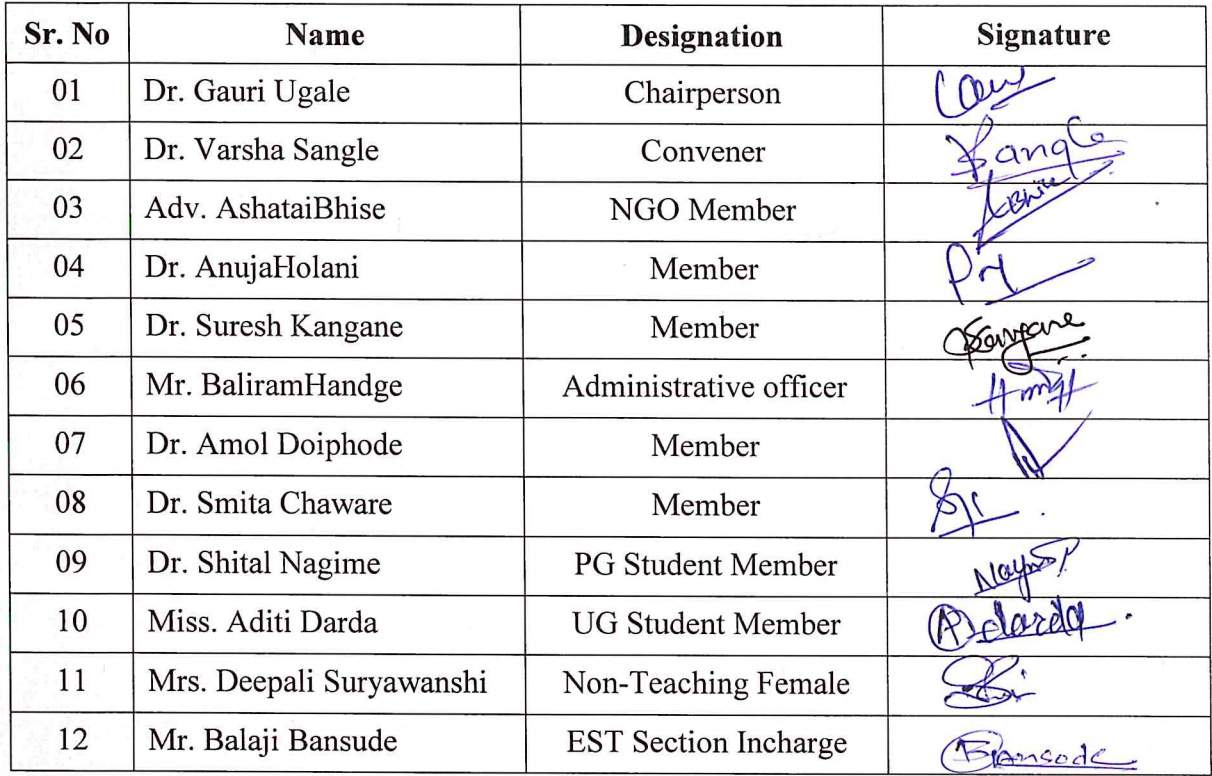 Sr. No Name Designation Signature
01 Dr. Gauri Ugale Chairperson
02 Dr. Varsha Sangle Convener Sangle
03 Adv. AshataiBhise NGO Member ABhise
04 Dr. AnujaHolani Member
05 Dr. Suresh Kangane Member Kangane
06 Mr. BaliramHandge Administrative officer
07 Dr. Amol Doiphode Member
08 Dr. Smita Chaware Member
09 Dr. Shital Nagime PG Student Member
10 Miss. Aditi Darda UG Student Member A darda.
11 Mrs. Deepali Suryawanshi Non-Teaching Female
12 Mr. Balaji Bansude EST Section Incharge Bansode